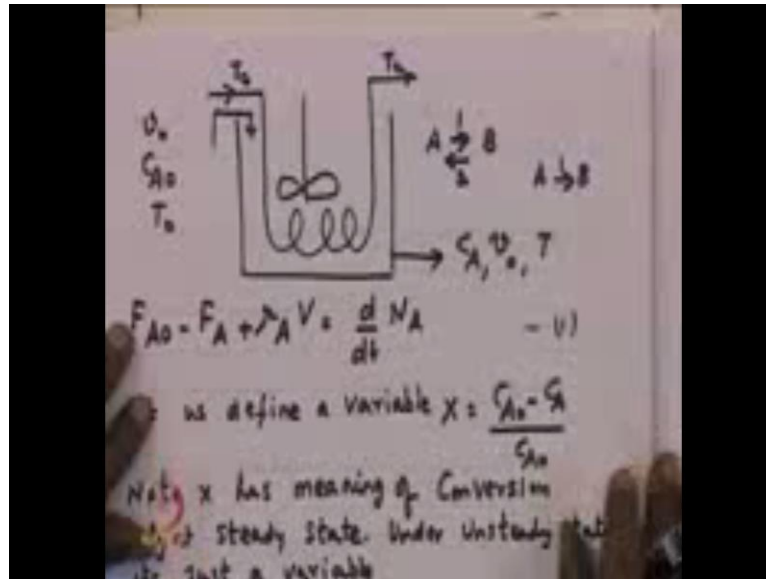 T₀ T₀
v₀
C_A0
T₀
A 1⇌2 B
A 1→ B
C_A, v₀, T
F_A0 - F_A + r_A V = d/dt N_A - (1)
us define a variable x = (C_A0 - C_A)/C_A0
Note x has meaning of Conversion
at steady state. Under Unsteady
just a variable